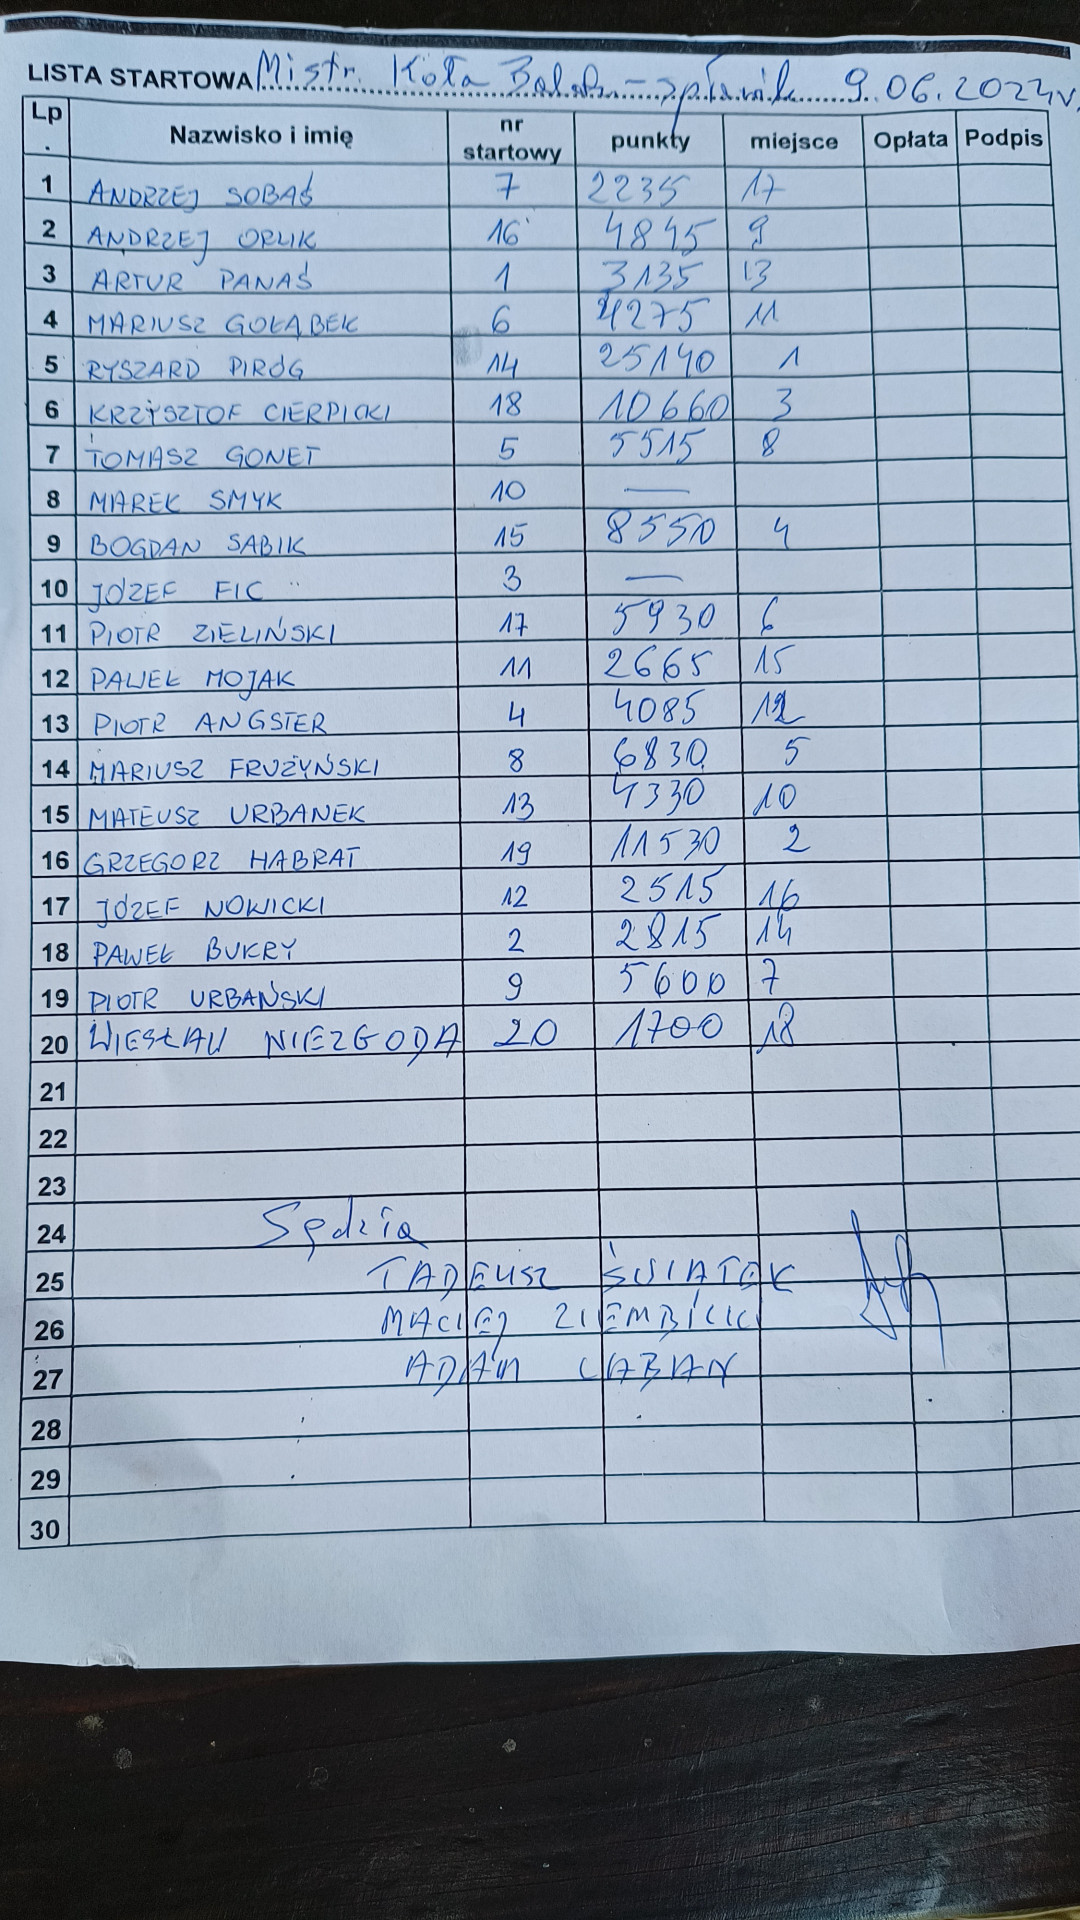 LISTA STARTOWA Mistr. Koła spławik 9.06.2024r.
Lp. Nazwisko i imię nr startowy punkty miejsce Opłata Podpis
1 ANDRZEJ SOBAŚ 7 2235 17
2 ANDRZEJ ORLIK 16 4845 9
3 ARTUR PANAŚ 1 3135 13
4 MARIUSZ GOŁĄBEK 6 4275 11
5 RYSZARD PIRÓG 14 25140 1
6 KRZYSZTOF CIERPICKI 18 10660 3
7 TOMASZ GONET 5 5515 8
8 MAREK SMYK 10 —
9 BOGDAN SABIK 15 8550 4
10 JÓZEF FIC 3 —
11 PIOTR ZIELIŃSKI 17 5930 6
12 PAWEŁ MOJAK 11 2665 15
13 PIOTR ANGSTER 4 4085 12
14 MARIUSZ FRUŻYŃSKI 8 6830 5
15 MATEUSZ URBANEK 13 4330 10
16 GRZEGORZ HABRAT 19 11530 2
17 JÓZEF NOWICKI 12 2515 16
18 PAWEŁ BUKRY 2 2815 14
19 PIOTR URBAŃSKI 9 5600 7
20 WIESŁAW NIEZGODA 20 1700 18
21
22
23
24 Sędzia
25 TADEUSZ ŚWIATEK
26 MACIEJ ZIEMBICKI
27 ADAM LABAN
28
29
30